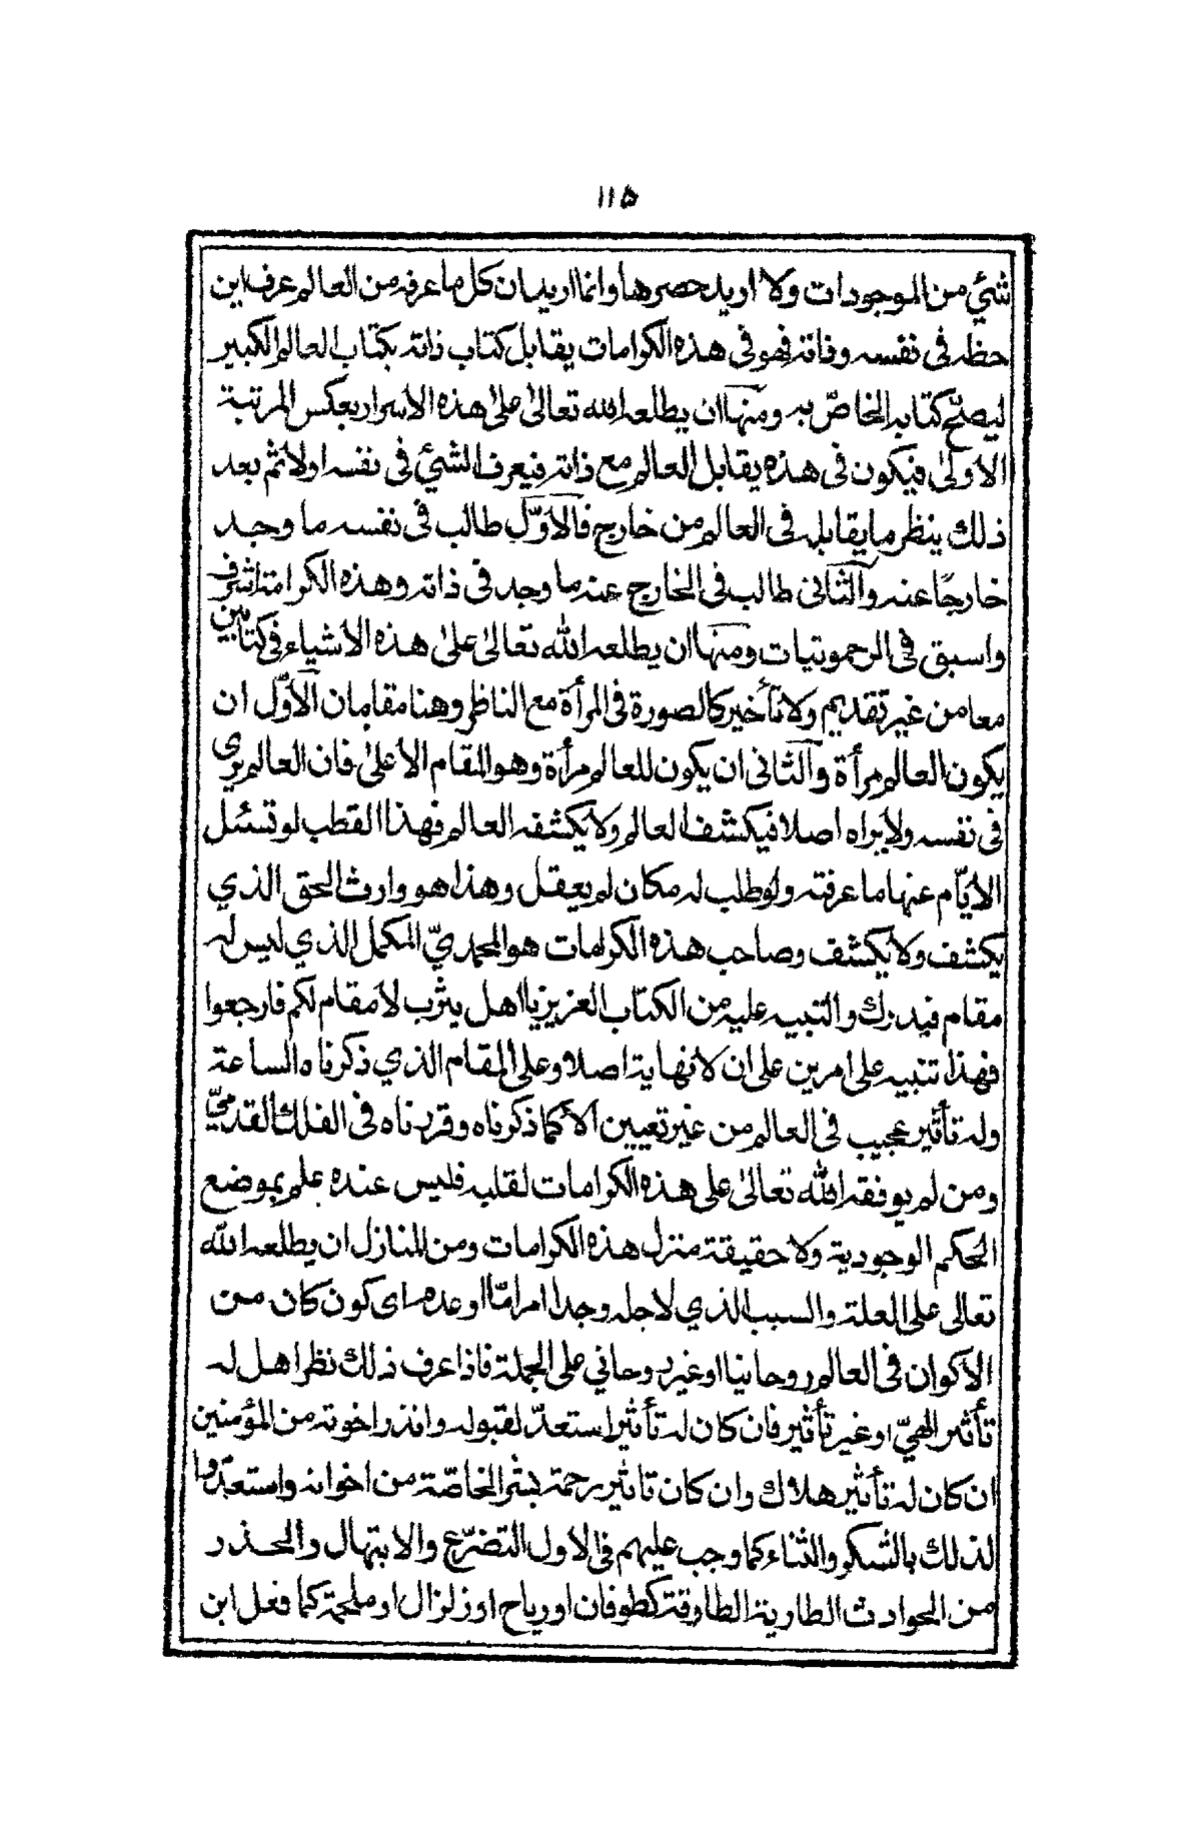 ١١٥
شئ من الموجودات ولا اريد حصرها وانما اريد ان كل ما عرفه من العالم عرف اين
حظه فى نفسه وذاته فهو فى هذه الكرامات يقابل كتاب ذاته بكتاب العالم الكبير
ليصحّح كتابه الخاصّ به ومنها ان يطلعه الله تعالىٰ علىٰ هذه الاسرار بعكس المرتبة
الأولىٰ فيكون فى هذه يقابل العالم مع ذاته فيعرف الشئ فى نفسه اولا ثم بعد
ذلك ينظر ما يقابله فى العالم من خارج فالأوّل طالب فى نفسه ما وجد
خارجًا عنه والثانى طالب فى الخارج عنه ما وجد فى ذاته وهذه الكرامة اشرف
واسبق فى الرحموتيات ومنها ان يطلعه الله تعالىٰ علىٰ هذه الأشياء فى كتابين
معا من غير تقديم ولا تأخير كالصورة فى المرأة مع الناظر وهنا مقامان الأوّل ان
يكون العالم مرأة والثانى ان يكون للعالم مرأة وهو المقام الأعلىٰ فان العالم يرى
فى نفسه ولا يراه اصلا فيكشف العالم ولا يكشفه العالم فهذا القطب لو تسئل
الأيّام عنها ما عرفته ولو طلب له مكان لم يعقل وهذا هو وارث الحق الذي
يكشف ولا يكشف وصاحب هذه الكرامات هو المحمديّ المكمل الذي ليس له
مقام فيدرك والتنبيه عليه من الكتاب العزيز يا اهل يثرب لا مقام لكم فارجعوا
فهذا تنبيه على امرين على ان لا نهاية اصلا وعلى المقام الذي ذكرناه والساعة
وله تأثير عجيب فى العالم من غير تعيين الا كما ذكرناه وقررناه فى الفلك القدميّ
ومن لم يوفقه الله تعالىٰ على هذه الكرامات لقلبه فليس عنده علم بموضع
الحكم الوجودية ولا حقيقة منزل هذه الكرامات ومن المنازل ان يطلعه الله
تعالى على العلة والسبب الذي لاجله وجد امر امّا او عدم اى كون كان من
الأكوان فى العالم روحانيا او غير روحاني على الجملة فاذا عرف ذلك نظر اهل له
تأثير الهيّ او غير تأثير فان كان له تأثير استعدّ لقبوله وانذر اخوته من المؤمنين
ان كان له تأثير هلاك وان كان تاثير رحمة بشر الخاصّة من اخوانه واستعدّوا
لذلك بالشكر والثناء كما وجب عليهم فى الاول التضرّع والابتهال والحذر
من الحوادث الطارية الطاوقة كطوفان او رياح او زلزال او ملحمة كما فعل ابن